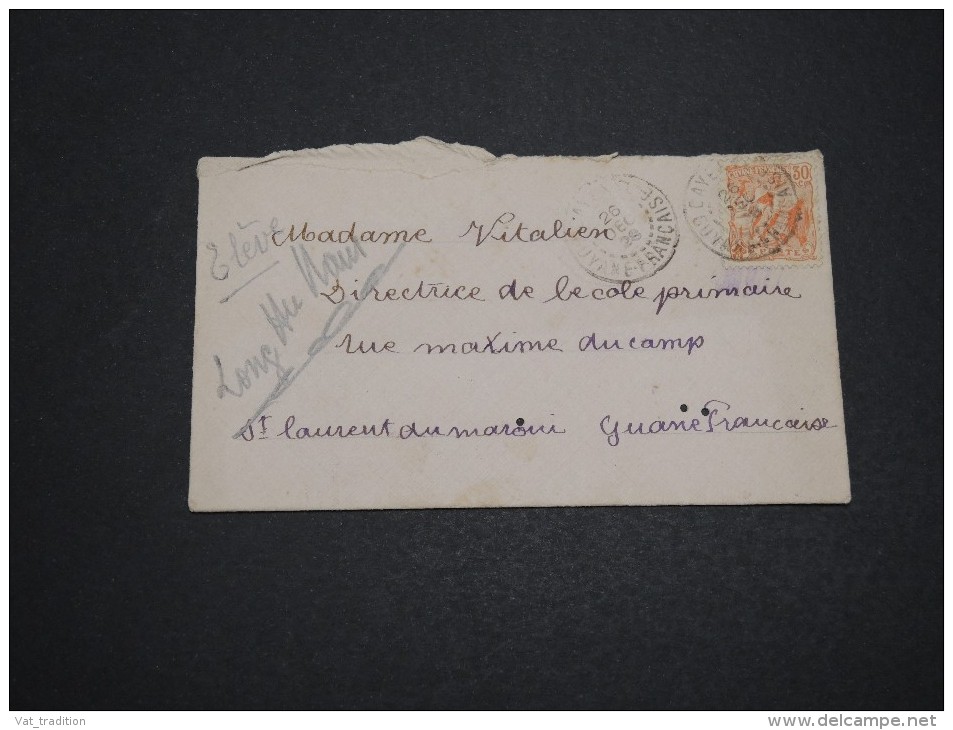 Elève
Long Hu
Madame Vitalien
Directrice de lecole primaire
rue maxime ducamp
St laurent du maroni Guane Francaise
CAYENNE
26
DEC
GUYANE-FRANÇAISE
30
POSTES
Vat_tradition
delcampe.net